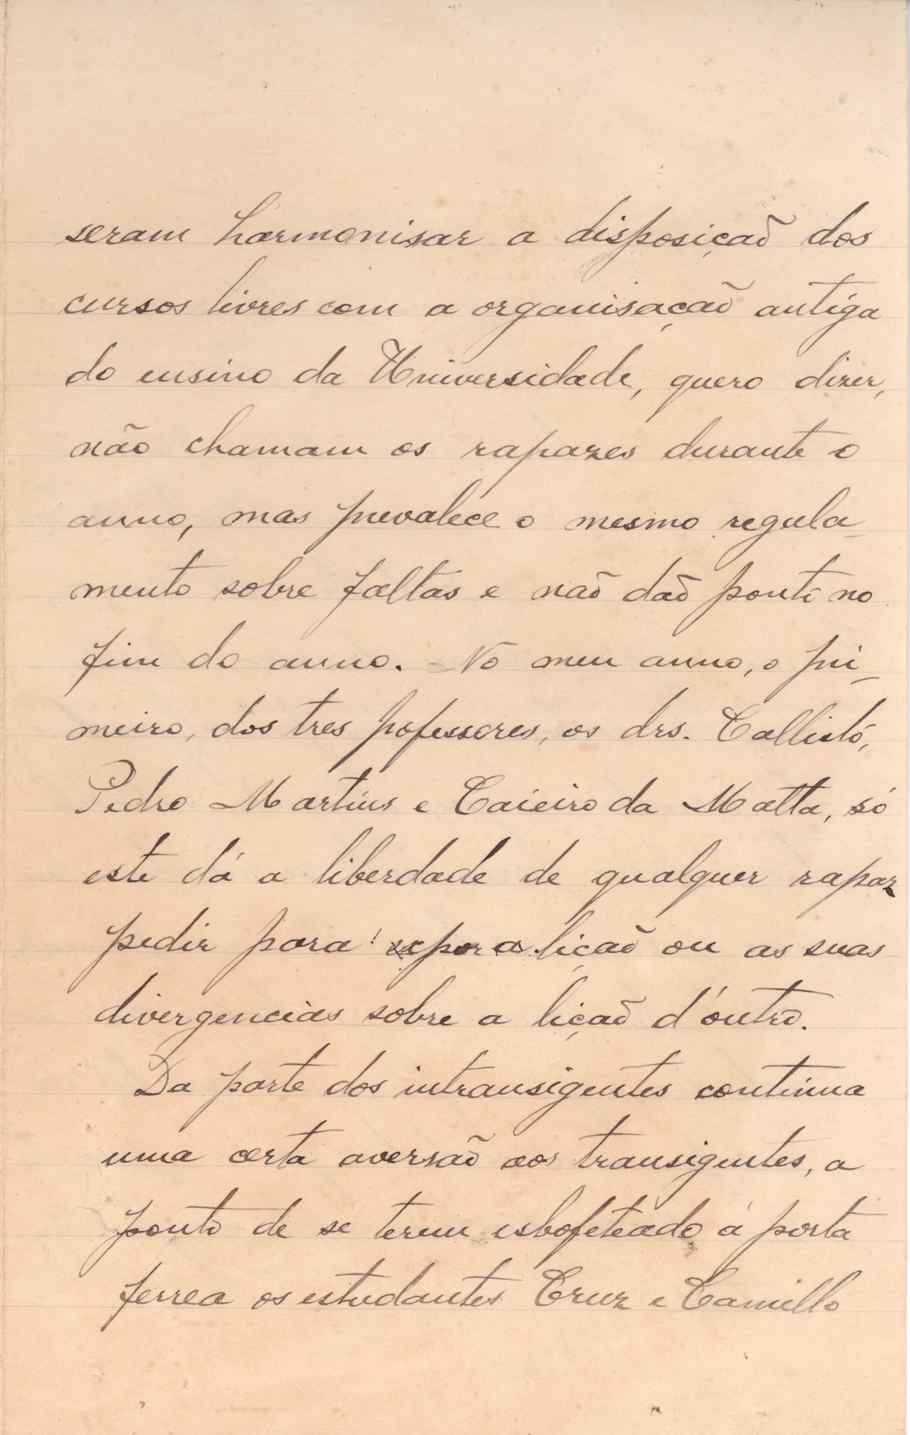 seram harmonisar a disposiçaõ dos
cursos livres com a organisaçaõ antiga
do ensino da Universidade, quero dizer,
não chamam os rapazes durante o
anno, mas prevalece o mesmo regula-
mento sobre faltas e naõ daõ ponto no
fim do anno. - No meu anno, o pri-
meiro, dos tres professores, os drs. Callisto,
Pedro Martins e Caieiro da Matta, só
este dá a liberdade de qualquer rapaz
pedir para expor a liçaõ ou as suas
divergencias sobre a liçaõ d'outro.
Da parte dos intransigentes continua
uma certa aversaõ aos transigentes, a
ponto de se terem esbofeteado á porta
ferrea os estudantes Cruz e Camillo